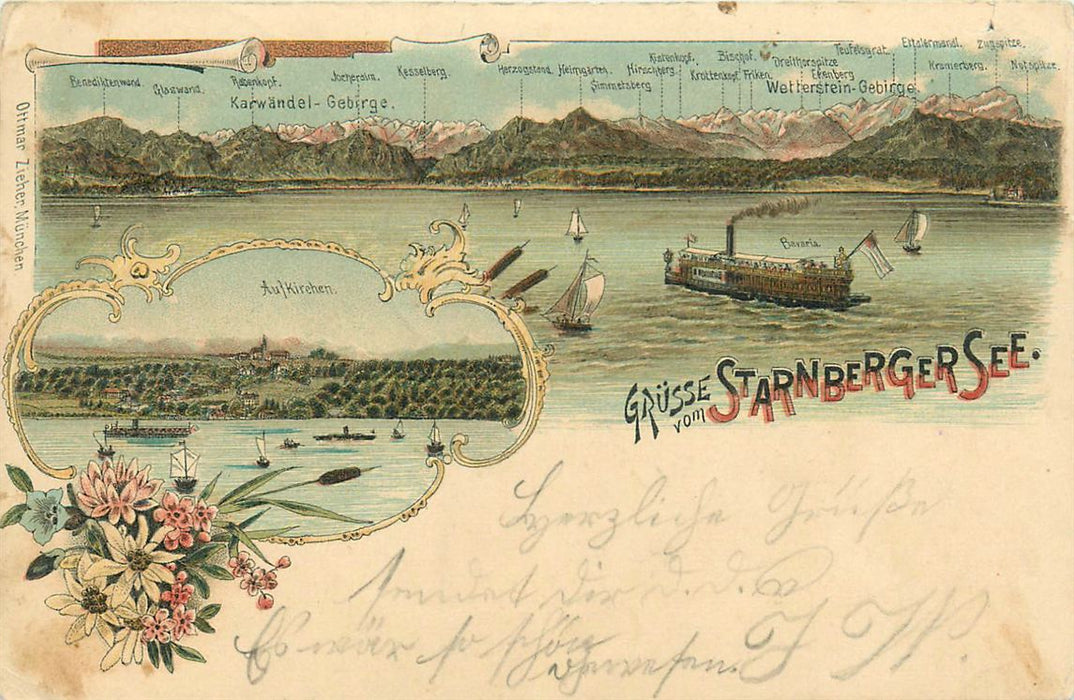 Benediktenwand.
Glaswand.
Rabenkopf.
Jocheralm.
Kesselberg.
Herzogstand.
Heimgarten.
Simmetsberg
Hirschberg.
Kistenkopf.
Krottenkopf
Bischof.
Friken.
Dreithorspitze
Eckenberg
Teufelsgrat.
Ettalermandl.
Kramerberg.
Zugspitze.
Karwändel-Gebirge.
Wetterstein-Gebirge.
Ottmar Zieher, München
Bavaria.
Aufkirchen.
GRÜSSE vom STARNBERGER SEE.
Herzliche Grüße
sendet Dir d. d.
Es wär so schön
gewesen.